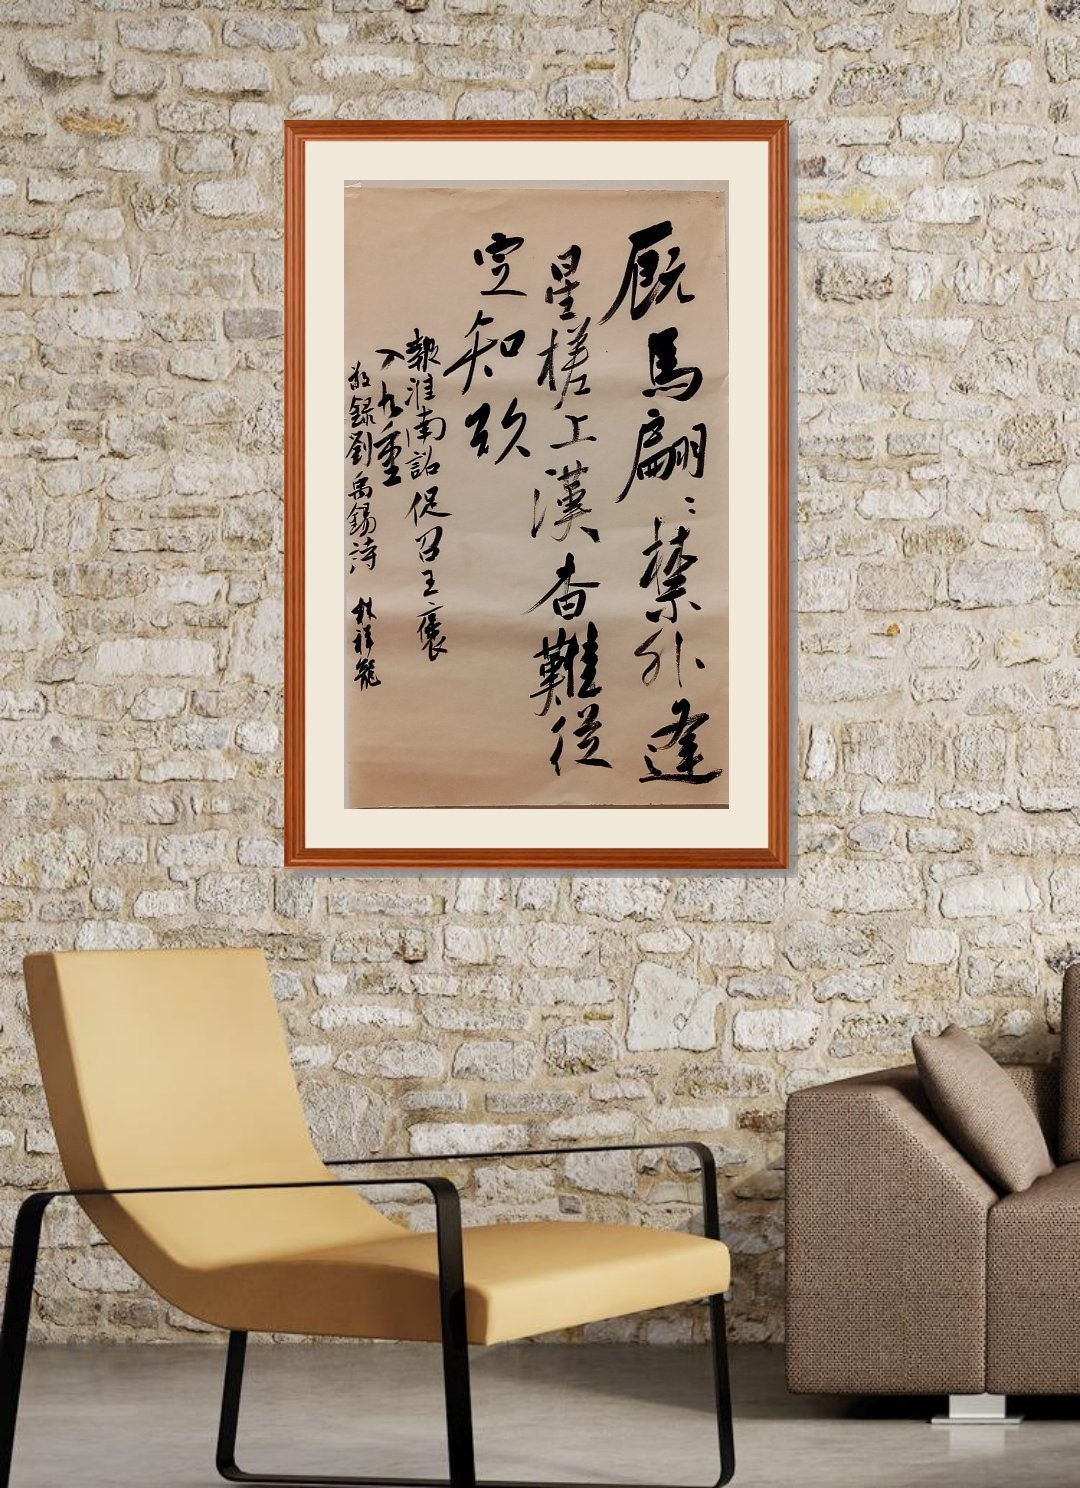 厩馬翩〻禁外逢
星槎上漢杳難從
定知欲
報淮南詔促召王褒
入九重
敬錄劉禹錫詩 林祥龍